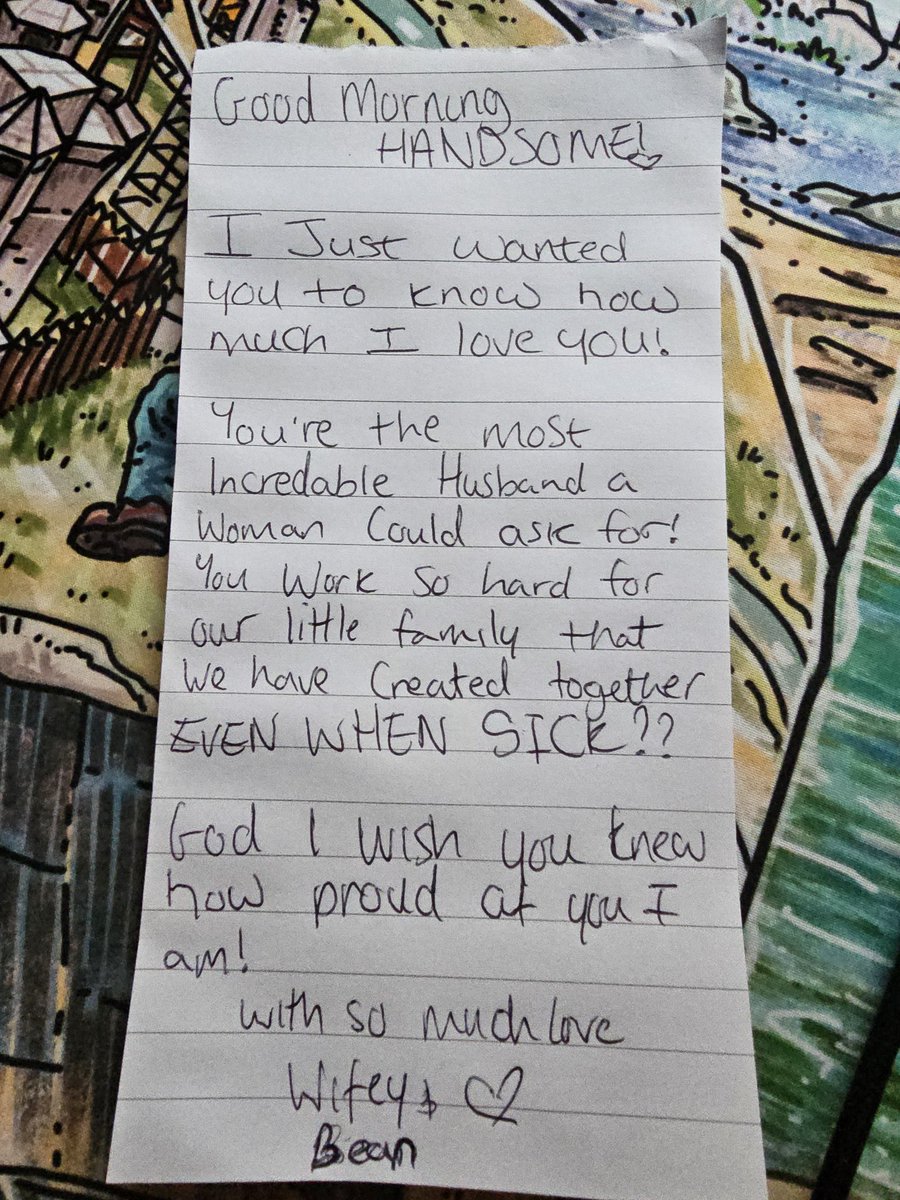 Good Morning
HANDSOME!
I Just wanted
you to know how
much I love you!
You're the most
Incredable Husband a
Woman Could ask for!
You Work so hard for
our little family that
We have Created together
EVEN WHEN SICK??
God I wish you knew
how proud of you I
am!
with so much love
Wifey &
Bean